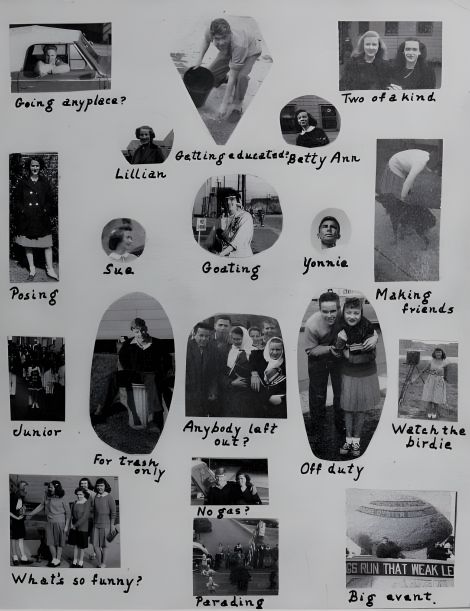 Going anyplace?
Two of a kind
Lillian
Getting educated?
Betty Ann
Posing
Sue
Goating
Yonnie
Making
friends
Junior
For trash
only
Anybody left
out?
Off duty
Watch the
birdie
What's so funny?
No gas?
Parading
GS RUN THAT WEAK LE
Big event.